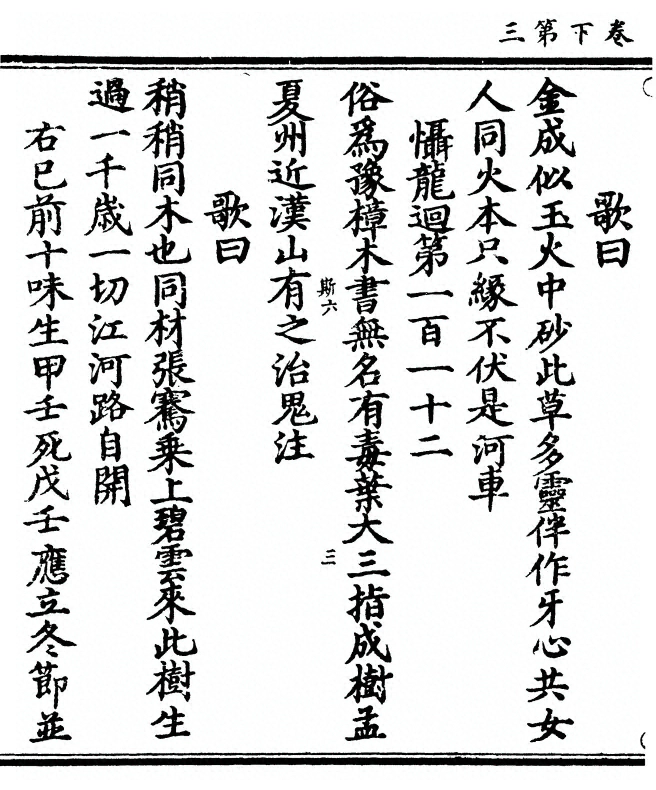 卷下第三
歌曰
金成似玉火中砂此草多靈伴作牙心共女
人同火本只緣不伏是河車
懾龍迴第一百一十二
俗爲豫樟木書無名有毒葉大三指成樹孟
夏州近漢山有之治鬼注
斯六
三
歌曰
稍稍同木也同材張騫乗上碧雲來此樹生
過一千歲一切江河路自開
右已前十味生甲壬死戊壬應立冬節並